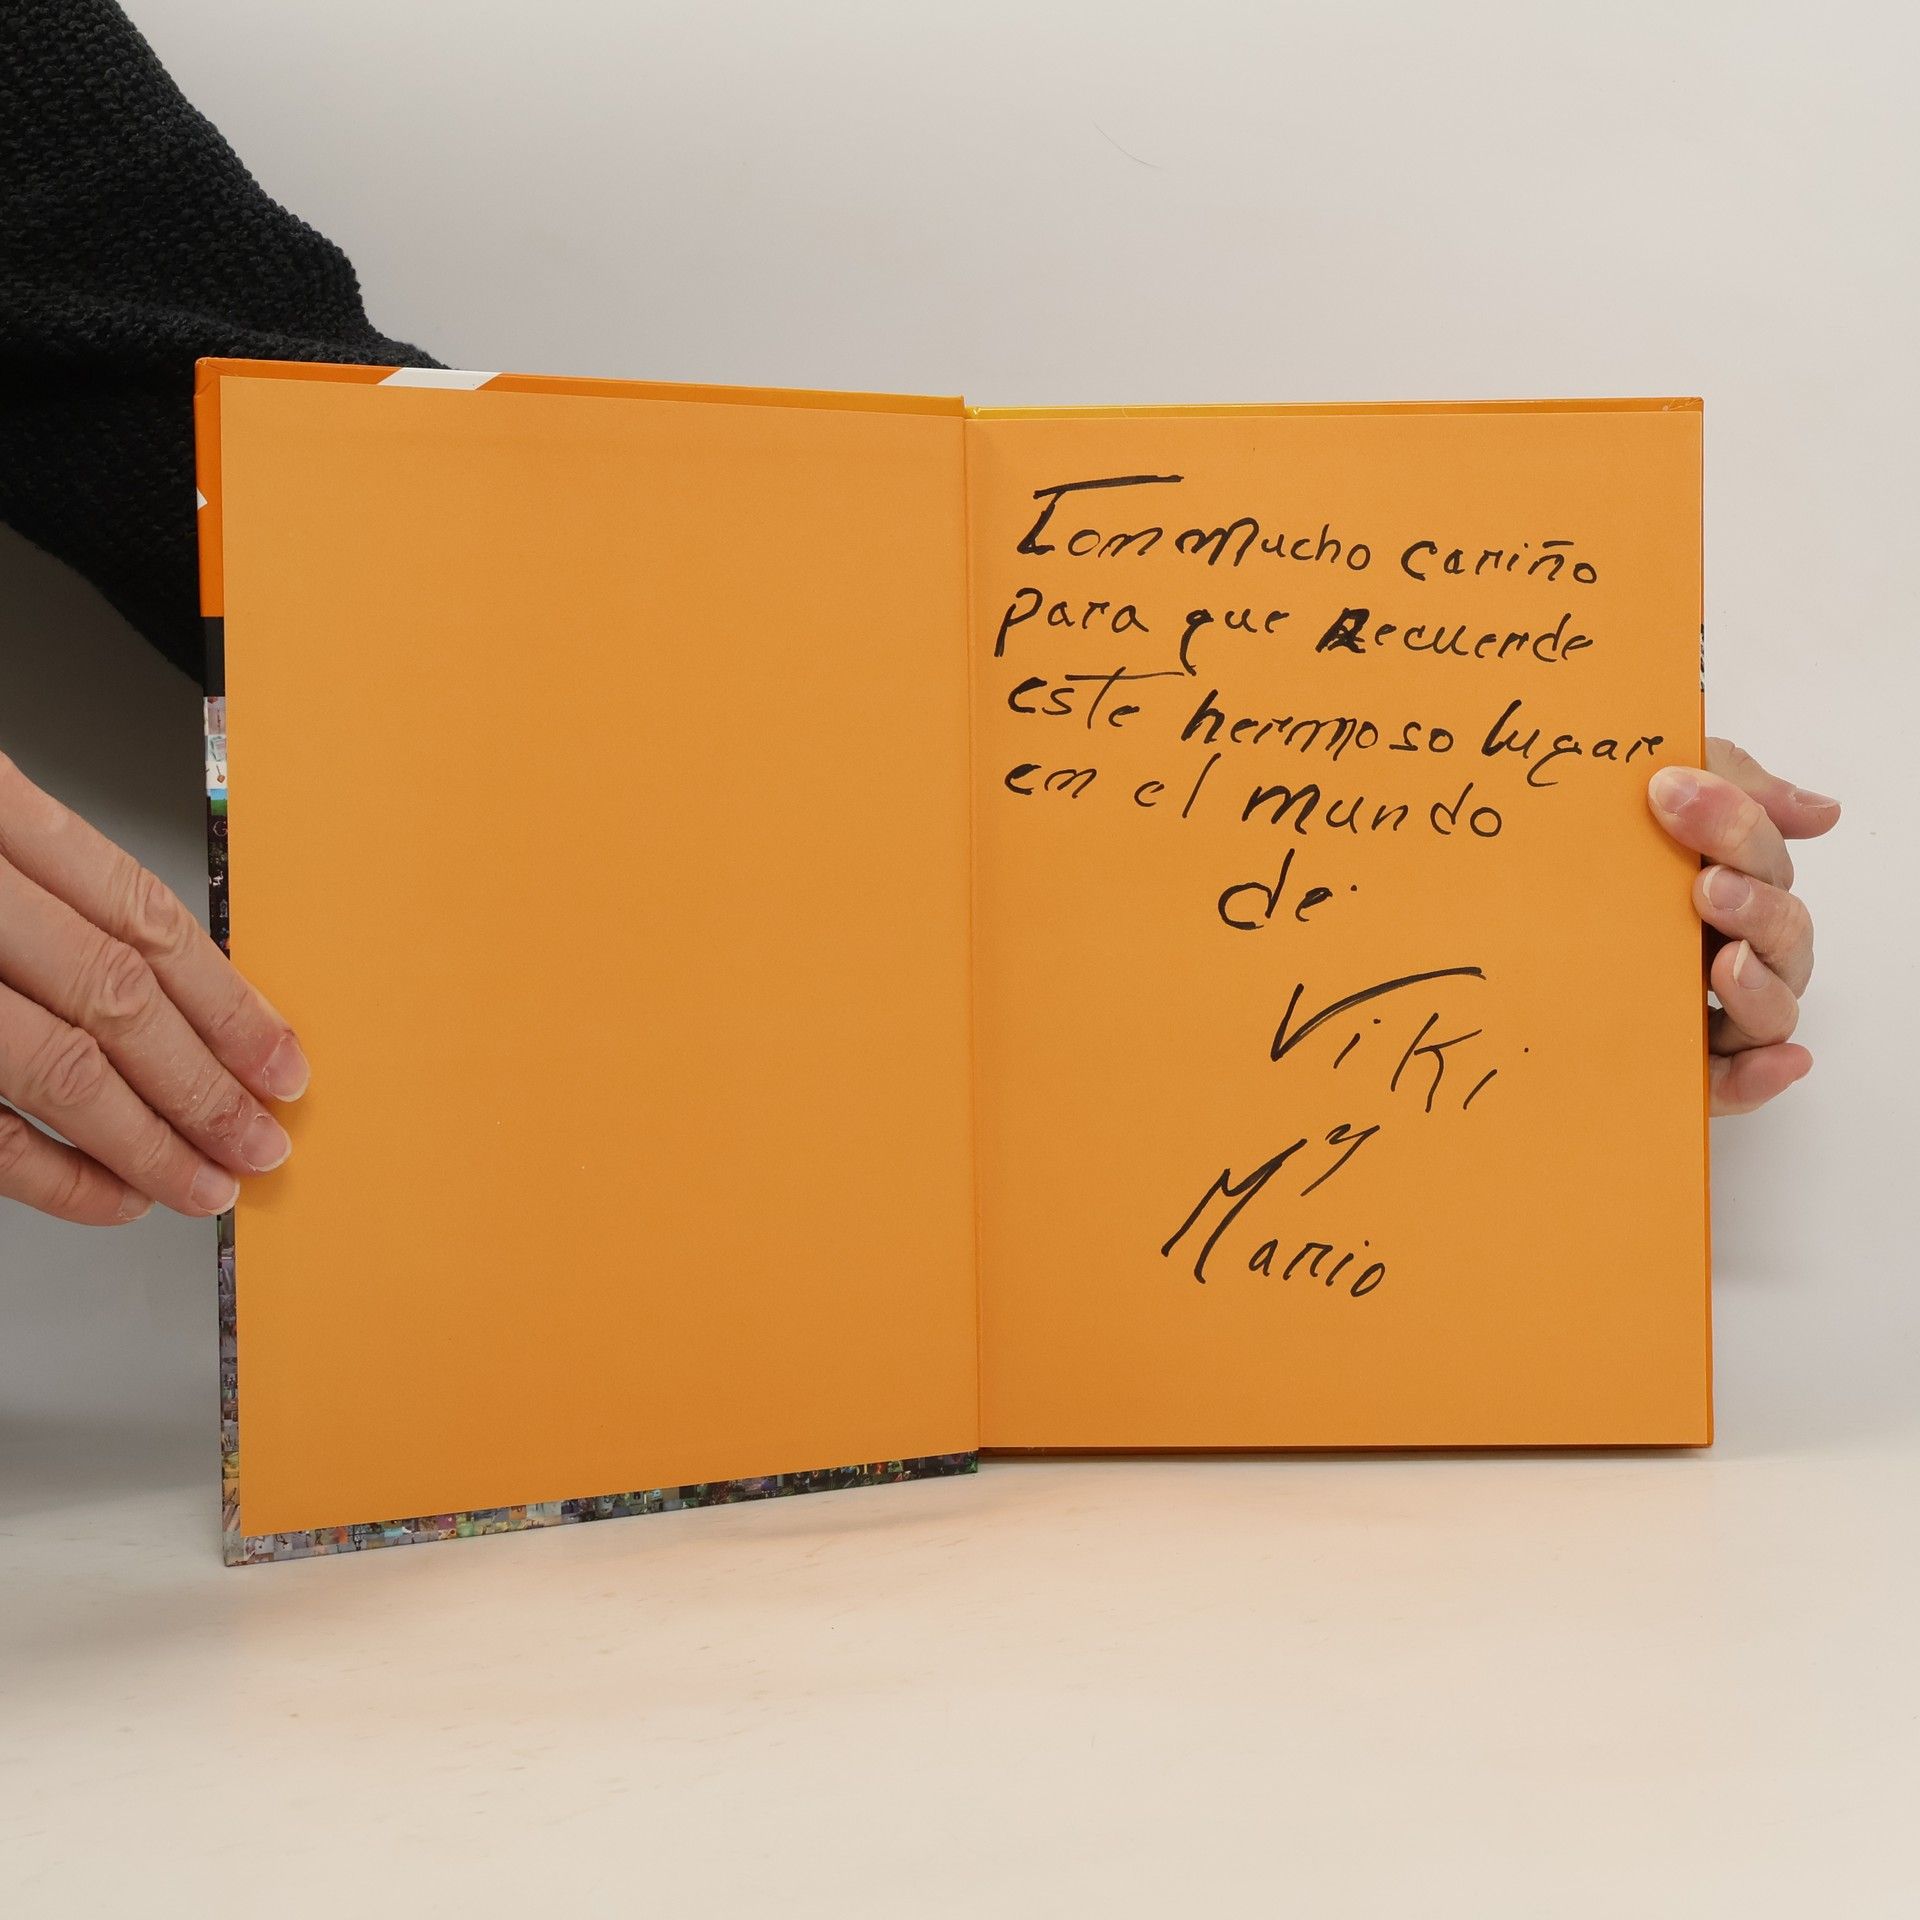 Con Mucho cariño
para que Recuerde
este hermoso lugar
en el mundo
de
Viki
y
Mario